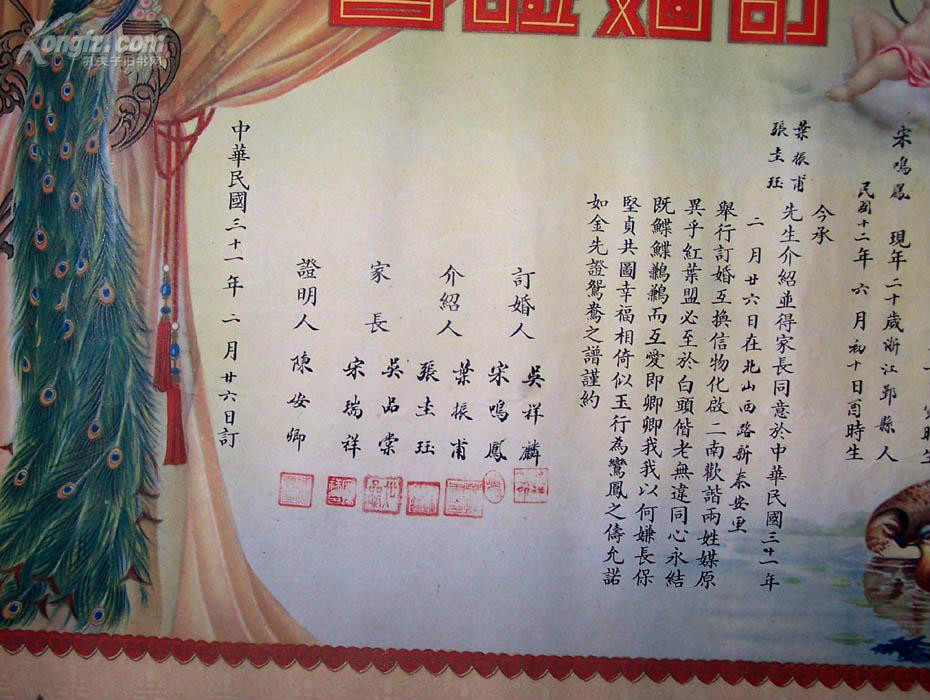 訂婚證書
宋鳴鳳 現年二十歲浙江鄞縣人
民國十二年 六月初十日酉時生
今承
葉振甫
張圭珏 先生介紹並得家長同意於中華民國三十一年
二月廿六日在北山西路新泰安里
舉行訂婚互換信物化啟二南歡諧兩姓媒原
異乎紅葉盟必至於白頭偕老無違同心永結
既鰈鰈鶼鶼而互愛即卿卿我我以何嫌長保
堅貞共圖幸福相倚似玉行為鸞鳳之儔允諾
如金先證鴛鴦之譜謹約
訂婚人 吳祥麟
宋鳴鳳
介紹人 葉振甫
張圭珏
家長 吳品棠
宋瑞祥
證明人 陳安卿
中華民國三十一年二月廿六日訂
Kongfz.com
孔夫子旧书网